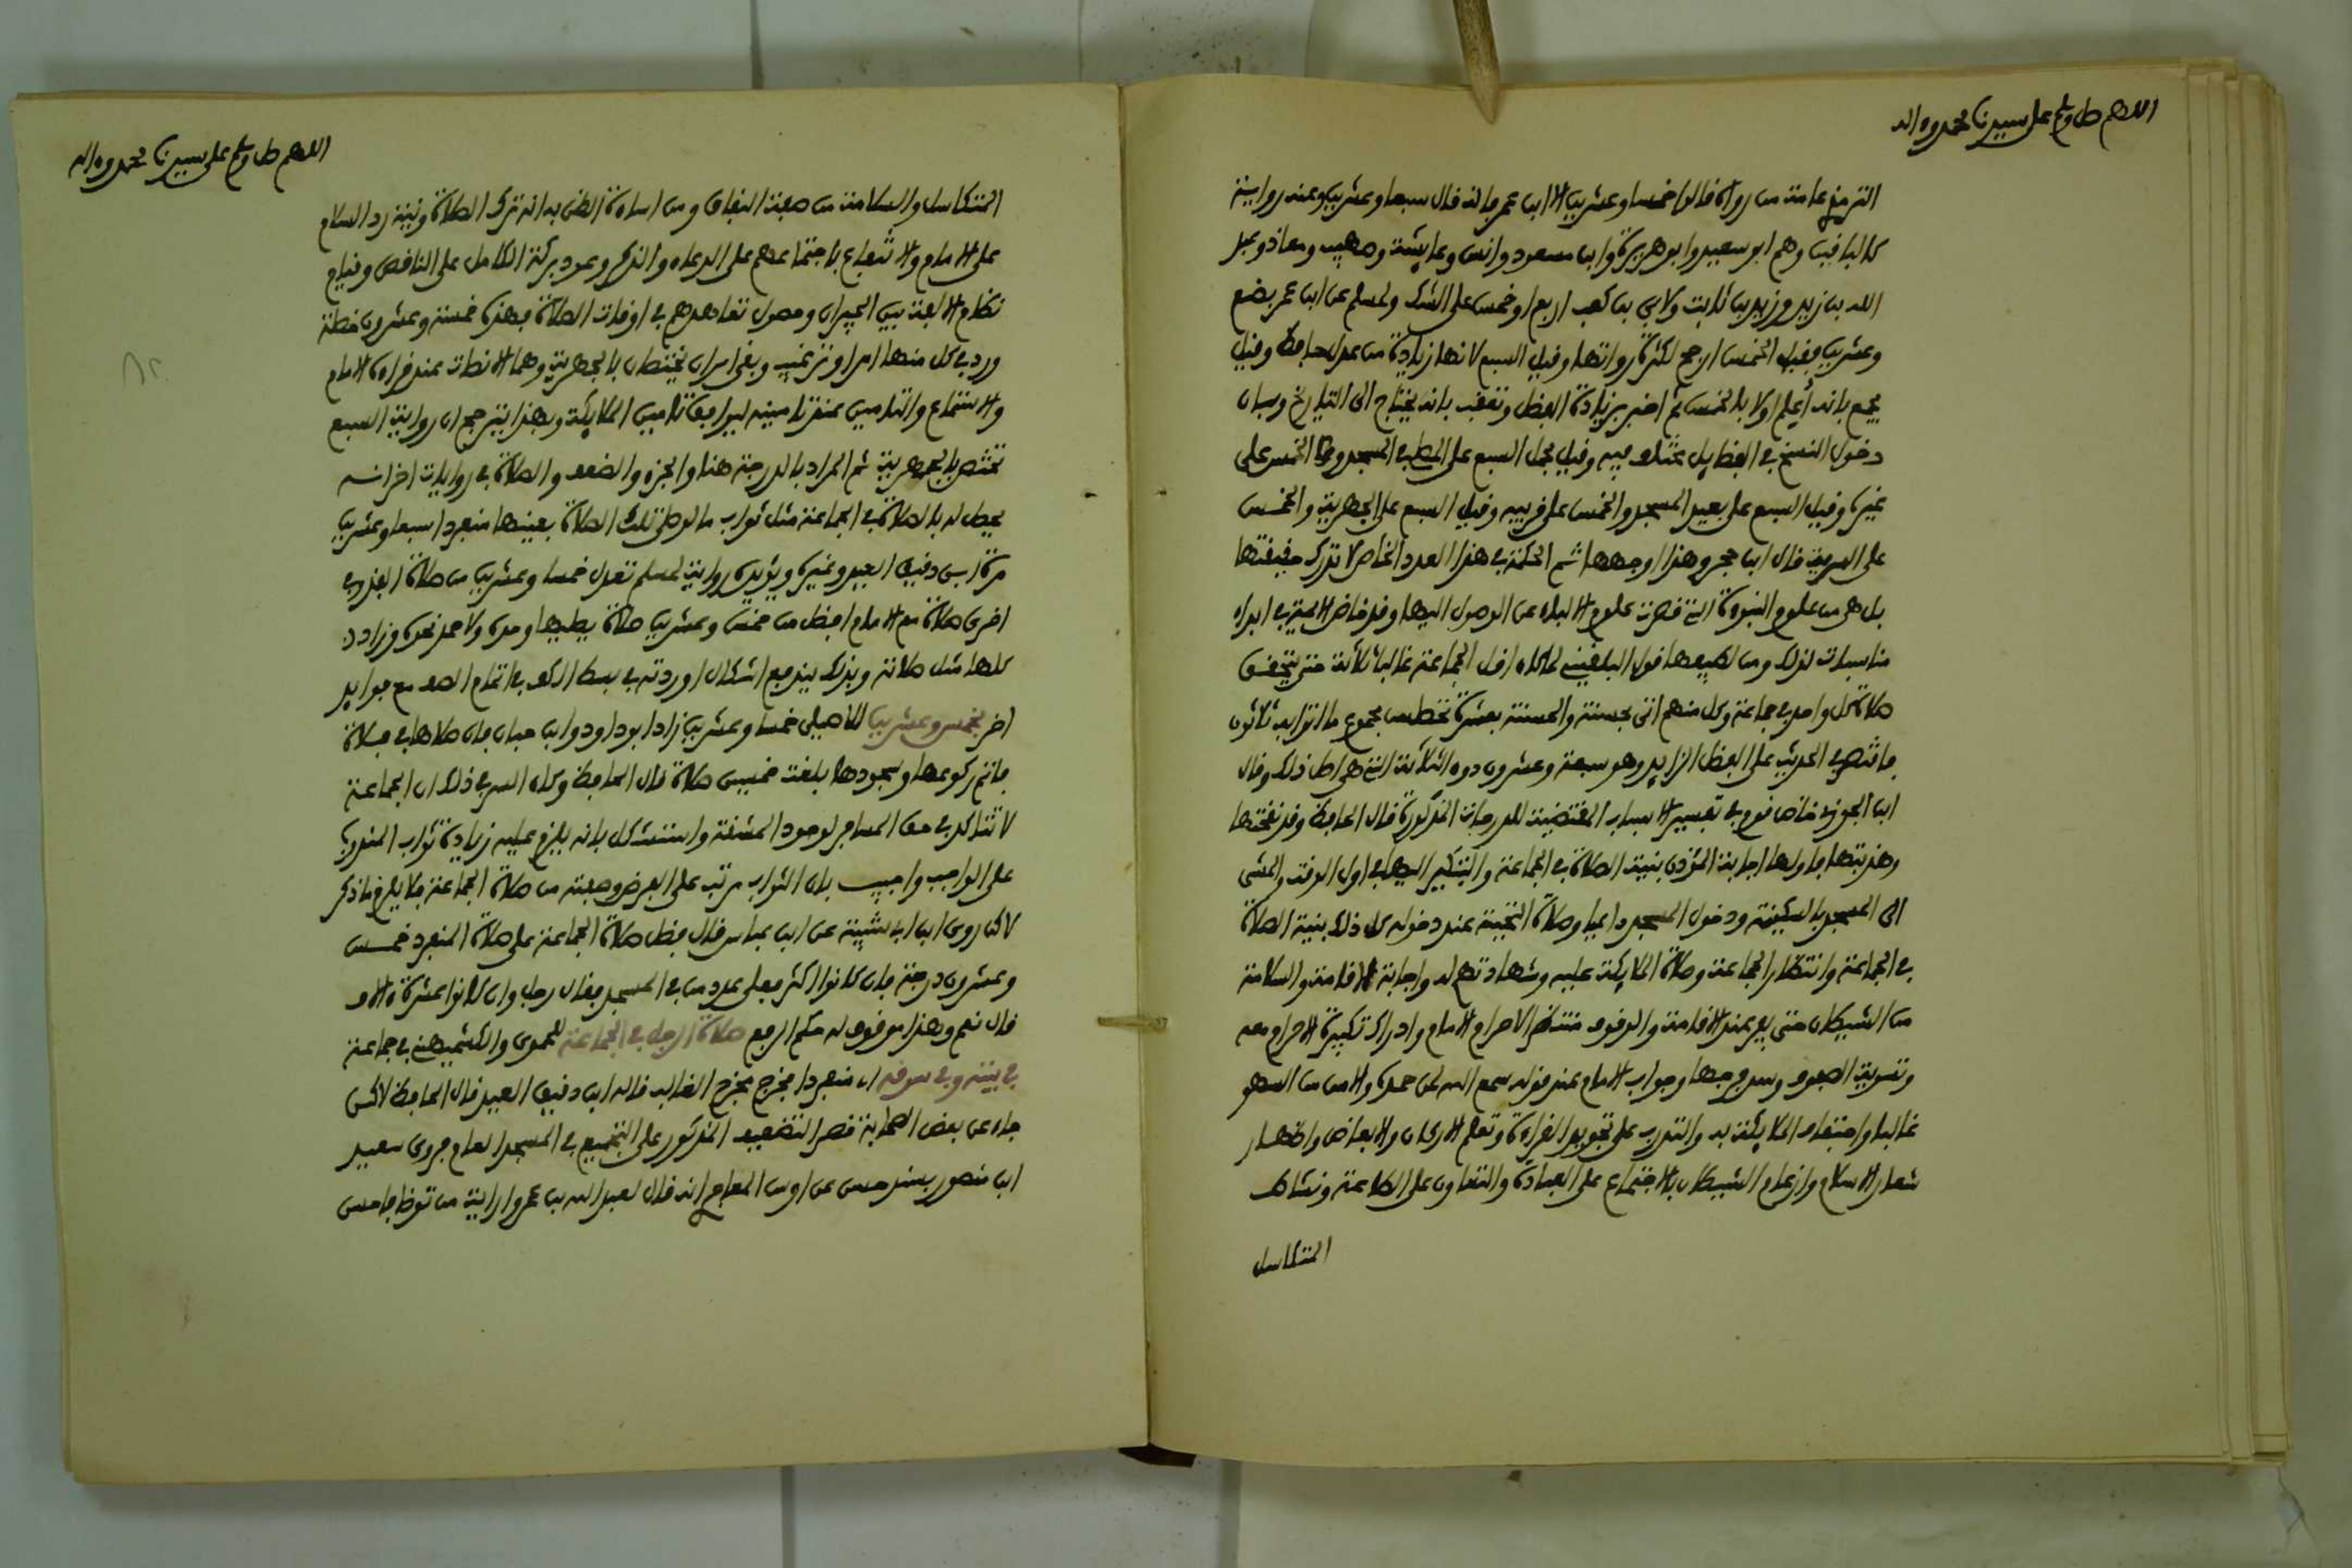 اللهم صل وسلم على سيدنا محمد وءاله
الترمذي عامة من رواه قالوا خمسا وعشرين الا ابن عمر فانه قال سبعا وعشرين وعنه رواية
كالباقين وهم ابو سعيد وابو هريرة وابن مسعود وانس وعايشة وصهيب ومعاذ وعبد
الله بن زيد وزيد بن ثابت ولابي بن كعب اربعا وخمس على الشك ولمسلم عن ابن عمر بضع
وعشرين فقيل الخمس ارجح لكثرة رواتها وقيل السبع لانها زيادة من عدل حافظ وقيل
يجمع بانه أعلم اولا بالخمس ثم اخبر بزيادة الفضل وتعقب بانه يحتاج الى التاريخ وبان
دخول النسخ في الفضايل مختلف فيه وقيل محل السبع على المصلى في المسجد والخمس على
غيره وقيل السبع على بعيد المسجد والخمس على قريبه وقيل السبع على الجهرية والخمس
على السرية قال ابن حجر وهذا اوجهها ثم الحكمة في هذا العدد الخاص لا تدرك حقيقتها
بل هي من علوم النبوءة التي قصرت علوم الالباء عن الوصول اليها وقد خاض الايمة في ابداء
مناسبات لذلك ومن لطيفها قول البلقيني لما كان اقل الجماعة غالبا ثلاثة حتى يتحقق
صلاة كل واحد في جماعة وكل منهم اتى بحسنة والحسنة بعشرة تحصل من مجموع ما اتوا به ثلاثون
فاقتصر في الحديث على الفضل الزايد وهو سبعة وعشرون دون الثلاثة التي هي اصل ذلك وقال
ابن الجوزي خاض قوم في تفسير الاسباب المقتضية للدرجات المذكورة قال الحافظ وقد نقحتها
وهذبتها فاولها اجابة المؤذن بنية الصلاة في الجماعة والتبكير اليها في اول الوقت والمشي
الى المسجد بالسكينة ودخول المسجد داعيا وصلاة التحية عند دخوله كل ذلك بنية الصلاة
في الجماعة وانتظار الجماعة وصلاة الملايكة عليه وشهادتهم له واجابة الاقامة والسلامة
من الشيطان حتى يفر عند الاقامة والوقوف منتظرا لاحرام الامام وادراك تكبيرة الاحرام معه
وتسوية الصفوف وسد فرجها وجواب الامام عند قوله سمع الله لمن حمده والامن من السهو
غالبا واحتفاف الملايكة به والتدرب على تجويد القراءة وتعلم الاركان والابعاض واظهار
شعار الاسلام وارغام الشيطان بالاجتماع على العبادة والتعاون على الطاعة ونشاط
المتكاسل
اللهم صل وسلم على سيدنا محمد وءاله
المتكاسل والسلامة من صفة النفاق ومن اساءة الظن به انه ترك الصلاة ونية رد السلام
على الامام والانتفاع باجتماعهم على الدعاء والذكر وعود بركة الكامل على الناقص وقيام
نظام الالفة بين الجيران وحصول تعاهدهم في اوقات الصلاة فهذه خمسة وعشرون خصلة
ورد في كل منها امر او ترغيب وبقي امران يختصان بالجهرية وهما الانصات عند قراءة الامام
والاستماع والتامين عند تامينه ليوافق تامين الملايكة وبهذا يترجح ان رواية السبع
تختص بالجهرية ثم المراد بالدرجة هنا والجزء والضعف والصلاة في روايات اخر انه
يحصل له بالصلاة في الجماعة مثل ثواب ما لو صلى تلك الصلاة بعينها منفردا سبعا وعشرين
مرة ابن دقيق العيد وغيره ويؤيده رواية لمسلم تعدل خمسا وعشرين من صلاة الفذ وفي
اخرى صلاة مع الامام افضل من خمس وعشرين صلاة يصليها وحده ولاحمد نحوه وزاد
كلها مثل صلاته وبذلك يندفع اشكال اوردته في بسط الكف في اتمام الصف مع فوايد
اخر بخمس وعشرين للاصيلي خمسا وعشرين زاد ابو داود وابن حبان فان صلاها في فلاة
فاتم ركوعها وسجودها بلغت خمسين صلاة قال الحافظ وكان السر في ذلك ان الجماعة
لا تتاكد في حق المسافر لوجود المشقة واستشكل بانه يلزم عليه زيادة ثواب المندوب
على الواجب واجيب بان الثواب مرتب على الفرض وصفته من صلاة الجماعة فلا يلزم ما ذكر
لاكن روى ابن ابي شيبة عن ابن عباس قال فضل صلاة الجماعة على صلاة المنفرد خمس
وعشرون درجة فان كانوا اكثر فعلى عدد من في المسجد فقال رجل وان كانوا عشرة ءالاف
قال نعم وهذا موقوف له حكم الرفع صلاة الرجل في الجماعة للحموي والكشميهني في جماعة
في بيته وفي سوقه اي منفردا مخرج مخرج الغالب قاله ابن دقيق العيد قال الحافظ لاكن
جاء عن بعض الصحابة قصر التضعيف المذكور على التجميع في المسجد العام فروى سعيد
ابن منصور بسند حسن عن اوس المعافري انه قال لعبد الله بن عمرو ارايت من توضا فاحسن